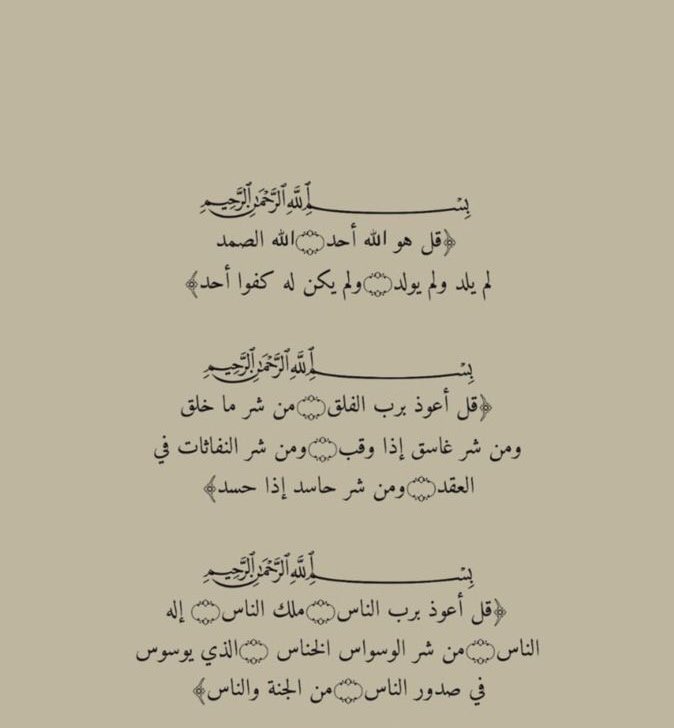 بِسْمِ ٱللَّهِ ٱلرَّحْمَٰنِ ٱلرَّحِيمِ
﴿قل هو الله أحد۝الله الصمد
لم يلد ولم يولد۝ولم يكن له كفوا أحد﴾
بِسْمِ ٱللَّهِ ٱلرَّحْمَٰنِ ٱلرَّحِيمِ
﴿قل أعوذ برب الفلق۝من شر ما خلق
ومن شر غاسق إذا وقب۝ومن شر النفاثات في
العقد۝ومن شر حاسد إذا حسد﴾
بِسْمِ ٱللَّهِ ٱلرَّحْمَٰنِ ٱلرَّحِيمِ
﴿قل أعوذ برب الناس۝ملك الناس۝ إله
الناس۝من شر الوسواس الخناس ۝الذي يوسوس
في صدور الناس۝من الجنة والناس﴾